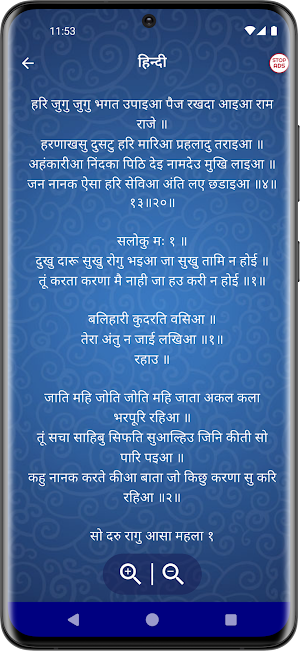 11:53
हिन्दी
STOP
ADS
हरि जुगु जुगु भगत उपाइआ पैज रखदा आइआ राम
राजे ॥
हरणाखसु दुसटु हरि मारिआ प्रहलादु तराइआ ॥
अहंकारीआ निंदका पिठि देइ नामदेउ मुखि लाइआ ॥
जन नानक ऐसा हरि सेविआ अंति लए छडाइआ ॥४॥
१३॥२०॥
सलोकु मः १ ॥
दुखु दारू सुखु रोगु भइआ जा सुखु तामि न होई ॥
तूं करता करणा मै नाही जा हउ करी न होई ॥१॥
बलिहारी कुदरति वसिआ ॥
तेरा अंतु न जाई लखिआ ॥१॥
रहाउ ॥
जाति महि जोति जोति महि जाता अकल कला
भरपूरि रहिआ ॥
तूं सचा साहिबु सिफति सुआल्हिउ जिनि कीती सो
पारि पइआ ॥
कहु नानक करते कीआ बाता जो किछु करणा सु करि
रहिआ ॥२॥
सो दरु रागु आसा महला १